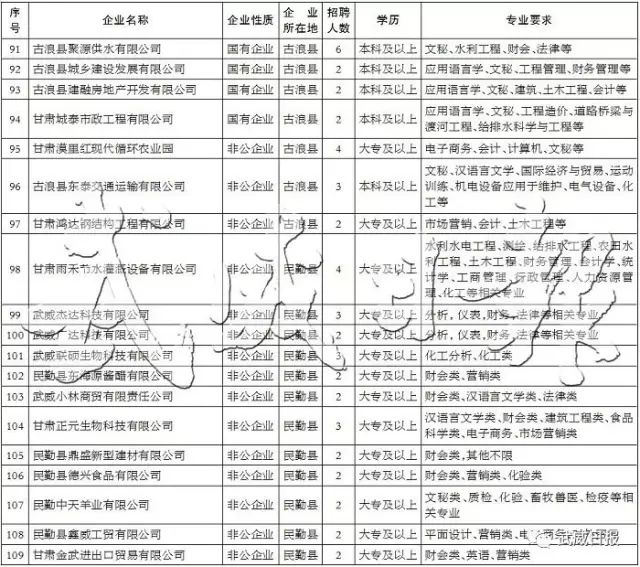 序号 企业名称 企业性质 企业所在地 招聘人数 学历 专业要求
91 古浪县聚源供水有限公司 国有企业 古浪县 6 本科及以上 文秘、水利工程、财会、法律等
92 古浪县城乡建设发展有限公司 国有企业 古浪县 2 本科及以上 应用语言学、文秘、工程管理、财务管理等
93 古浪县建融房地产开发有限公司 国有企业 古浪县 2 本科及以上 应用语言学、文秘、建筑、土木工程、会计等
94 甘肃城泰市政工程有限公司 国有企业 古浪县 2 本科及以上 应用语言学、文秘、工程造价、道路桥梁与
渡河工程、给排水科学与工程等
95 甘肃漠里红现代循环农业园 非公企业 古浪县 4 大专及以上 电子商务、会计、计算机、文秘等
96 古浪县东泰交通运输有限公司 非公企业 古浪县 3 本科及以上 文秘、汉语言文学、国际经济与贸易、运动
训练、机电设备应用于维护、电气设备、化
工等
97 甘肃鸿达钢结构工程有限公司 非公企业 古浪县 2 大专及以上 市场营销、会计、土木工程等
98 甘肃雨禾节水灌溉设备有限公司 非公企业 民勤县 4 大专及以上 水利水电工程、测绘、给排水工程、农田水
利工程、土木工程、财务管理、会计学、统
计学、工商管理、行政管理、人力资源管
理、化工等相关专业
99 武威杰达科技有限公司 非公企业 民勤县 3 大专及以上 分析、仪表、财务、法律等相关专业
100 武威广达科技有限公司 非公企业 民勤县 2 大专及以上 分析、仪表、财务、法律等相关专业
101 武威联硕生物科技有限公司 非公企业 民勤县 2 大专及以上 化工分析、化工类
102 民勤县东海源酱醋有限公司 非公企业 民勤县 2 大专及以上 财会类、营销类
103 武威小林商贸有限责任公司 非公企业 民勤县 2 大专及以上 财会类、汉语言文学类、法律类
104 甘肃正元生物科技有限公司 非公企业 民勤县 3 大专及以上 汉语言文学类、财会类、建筑工程类、食品
科学类、电子商务、市场营销类
105 民勤县鼎盛新型建材有限公司 非公企业 民勤县 2 大专及以上 财会类,其他不限
106 民勤县德兴食品有限公司 非公企业 民勤县 2 大专及以上 财会类、营销类、化验类
107 民勤中天羊业有限公司 非公企业 民勤县 2 大专及以上 文秘类、质检、化验、畜牧兽医、检疫等相
关专业
108 民勤县鑫威工贸有限公司 非公企业 民勤县 2 大专及以上 平面设计、营销类、电
109 甘肃金武进出口贸易有限公司 非公企业 民勤县 2 大专及以上 财会类、英语、营销类
武威日报